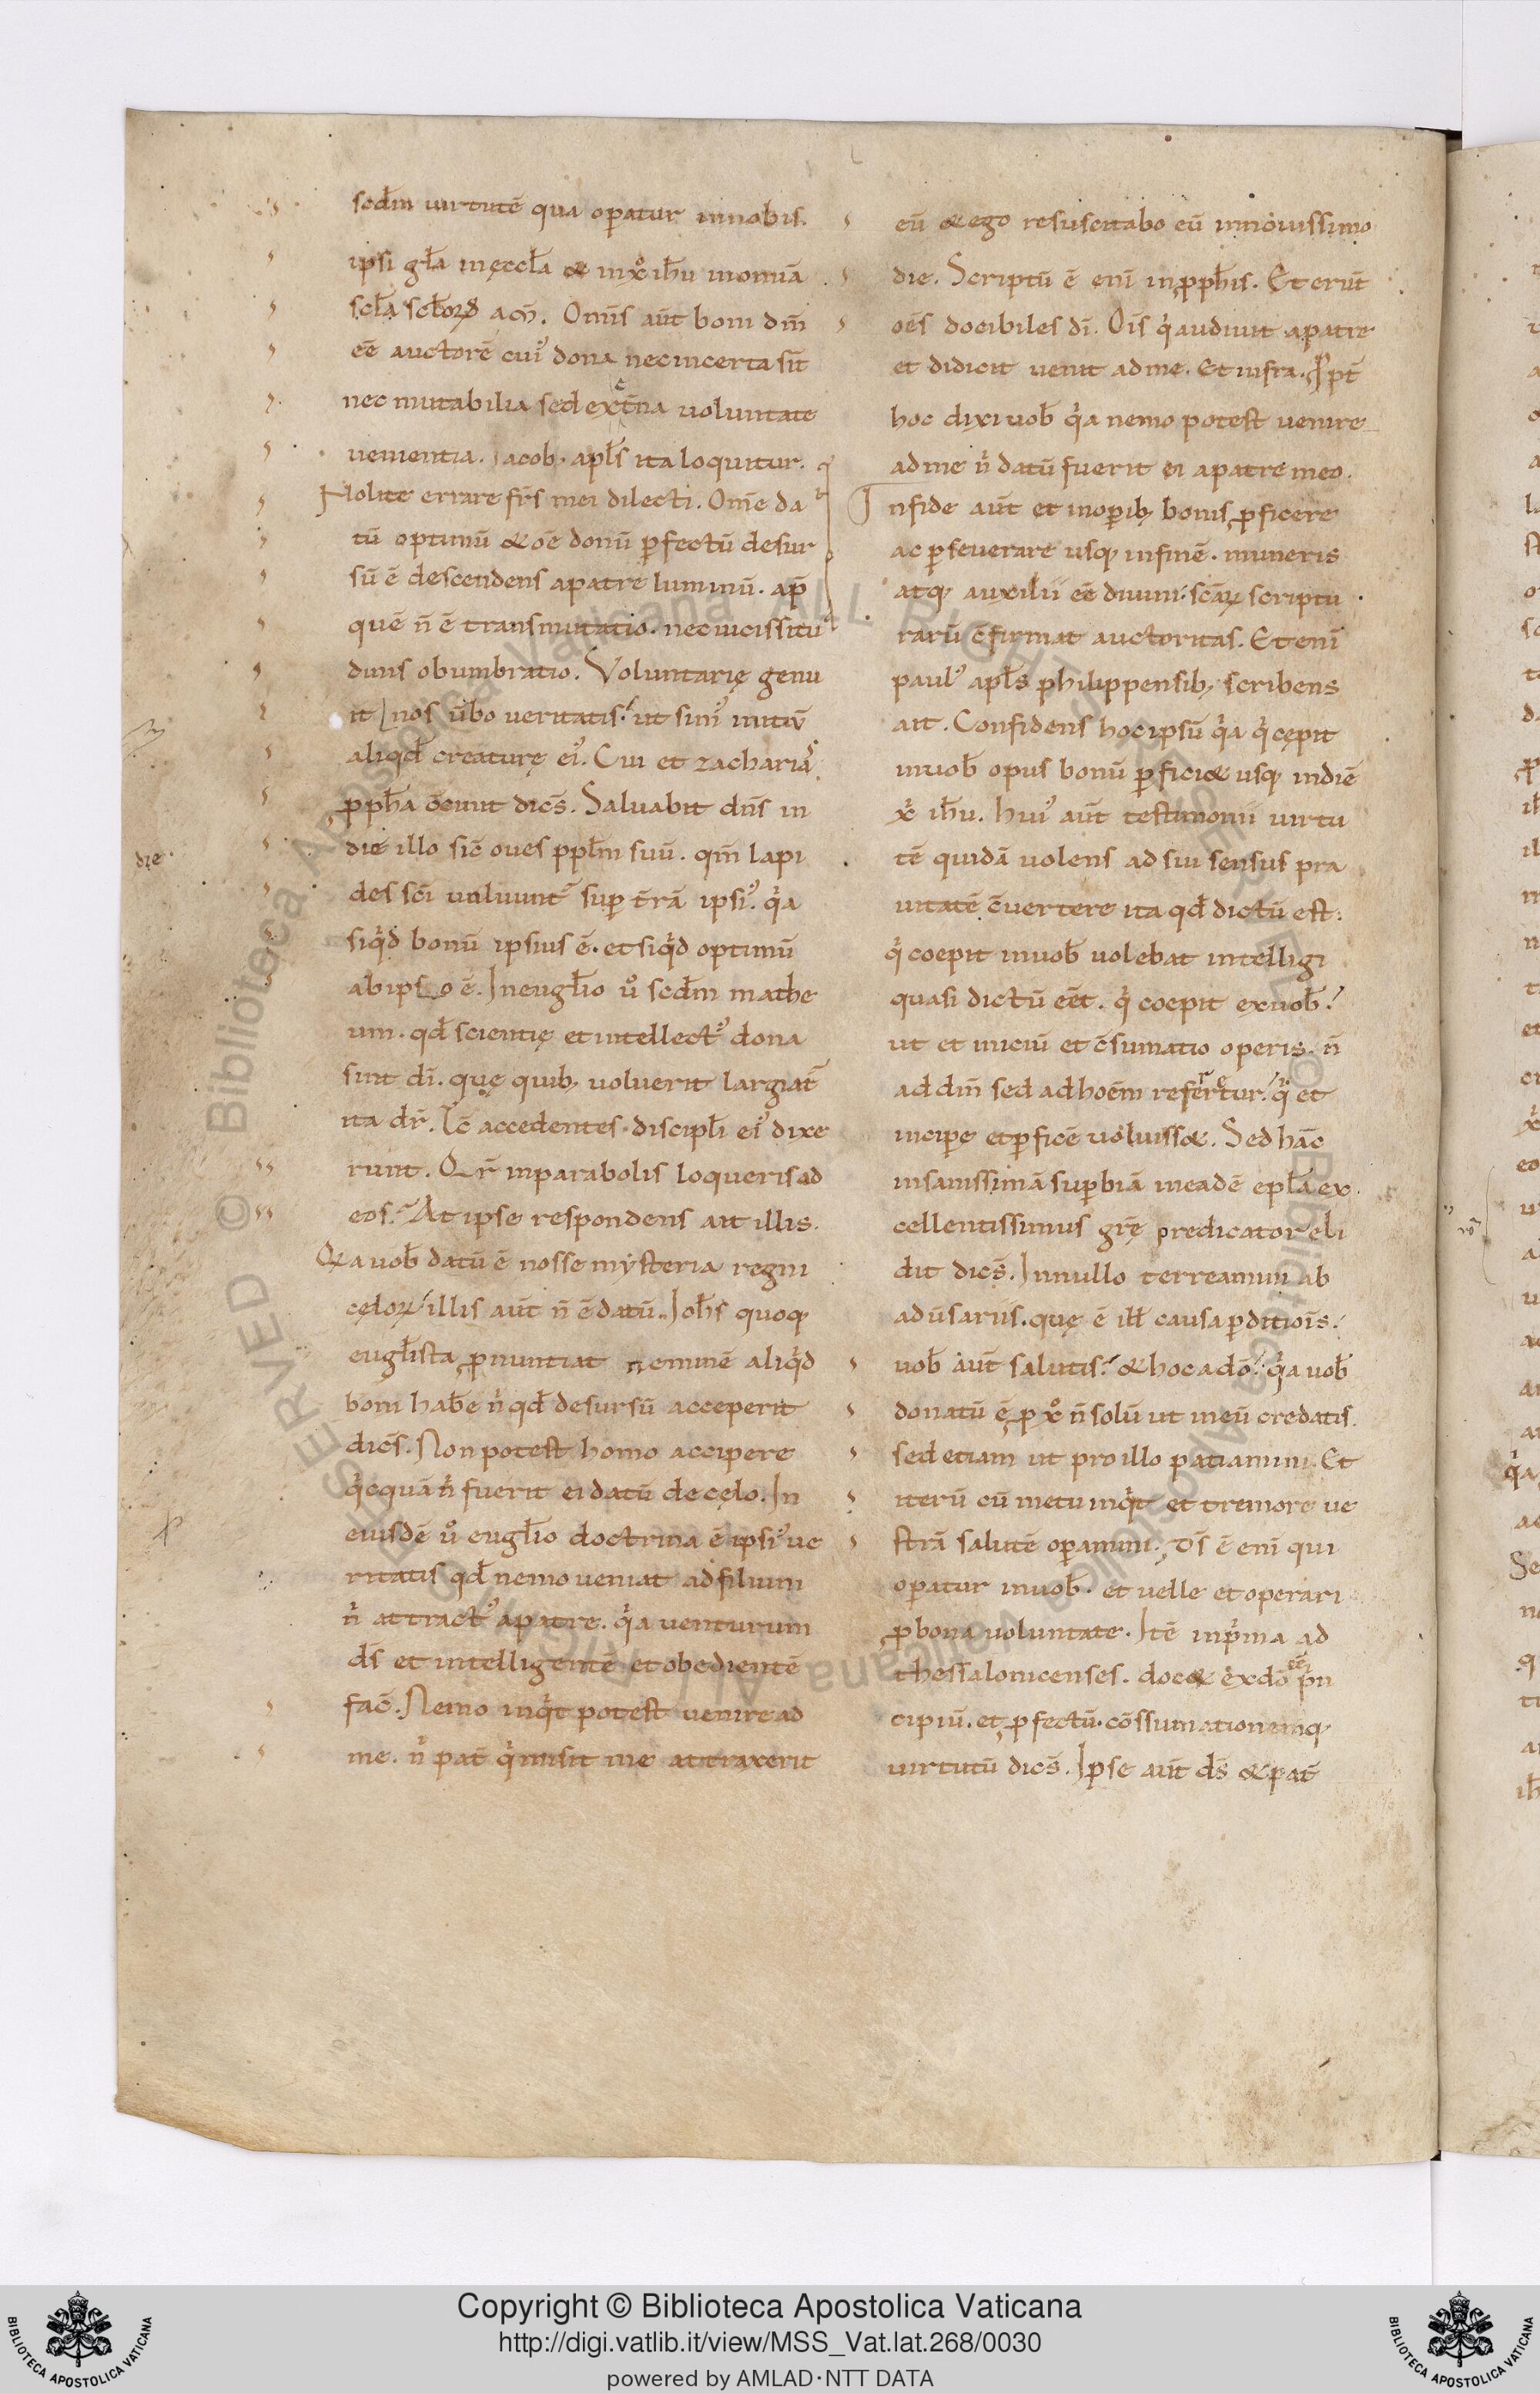 scdm̄ uirtutē qua oꝑatur innobis.
ipsi gła inęccła & inxp̄o ih̄u inomniā
scła scłoꝝ am̄. Omīs aūt boni dm̄
eē auctorē cuiꝰ dona necincerta sīt
nec mutabilia sed ex et̄na uoluntate
uenientia. iacob. apłs ita loquitur.
Nolite errare fr̄s mei dilecti. Om̄e da
tū optimū & oē donū ꝑfectū desur
sū ē descendens apatre luminū. ap̄
quē n̄ ē transmutatio. necuicissitu
dinis obumbratio. Voluntarię genu
it nos ūbo ueritatis. ut simꝰ initiū
aliqd̄ creaturę eiꝰ. Cui et zacharias
ꝓpħa c̄cinit dicēs. Saluabit dn̄s in
die illo sic̄ oues ppłm suū. qm̄ lapi
des sc̄i uoluunt̄ suꝑ t̄rā ipsiꝰ. qͥa
siqͥd bonū ipsius ē. et siqͥd optimū
abipso ē. Ineugłio uͦ scdm̄ mathe
um. qd̄ scientię et intellectꝰ dona
sint dī. quę quibꝫ uoluerit largiat̄
ita dr̄. Tc̄ accedentes discipłi eiꝰ dixe
runt. Qr̄ inparabolis loquerisad
eos. At ipse respondens ait illis.
Qa uob̄ datū ē nosse mẏsteria regni
cęloꝝ illis aūt n̄ ē datū. Ioħs quoqꝫ
eugłista ꝓnuntiat neminē aliqͥd
boni hab̄e nͥ qd̄ desursū acceperit
dicēs. Non potest homo accipere
qͥcquā nͥ fuerit ei datū de cęlo. In
eiusdē uͦ eugłio doctrina ē ipsiꝰ ue
ritatis qd̄ nemo ueniat adfilium
nͥ attractꝰ apatre. qͥa uenturum
d̄s et intelligentē et obedientē
fac̄. Nemo inqͥt potest uenire ad
me. nͥ pat̄ qͥ misit me attraxerit
die
eū & ego resuscitabo eū innouissimo
die. Scriptū ē enī inꝓpħis. Et erūt
oēs docibiles dī. Oīs qͥ audiuit apatre
et didicit uenit adme. Et infra. Ꝓpt̄
hoc dixi uob̄ qͥa nemo potest uenire
adme nͥ datū fuerit ei apatre meo.
Infide aūt et inoꝑibꝫ bonis ꝓficere
ac ꝑseuerare usqꝫ infinē. muneris
atqꝫ auxilii eē diuini. sc̄aꝝ scriptu
rarū c̄firmat auctoritas. Et enī
paulꝰ apłs philippensibꝫ scribens
ait. Confidens hoc ipsū qͥa qͥ cępit
inuob̄ opus bonū ꝑfici& usqꝫ indiē
xp̄i ih̄u. Huiꝰ aūt testimonii uirtu
tē quidā uolens ad sui sensus pra
uitatē c̄uertere ita qd̄ dictū est:
qͥ coepit inuob̄ uolebat intelligi
quasi dictū eēt. qͥ coepit exuob̄.
ut et iniciū et c̄sumatio operis. n̄
ad dm̄ sed adhoēm refertur. qͥ et
incipe et ꝑficē uoluiss&. Sed hāc
insanissimā suꝑbiā ineadē epła ex
cellentissimus gr̄ę predicator eli
dit dicēs. Innullo terreamini ab
adūsariis. quę ē iłł causa ꝑditioīs.
uob̄ aūt salutis. & hoc adō. qͥa uob̄
donatū ē ꝓ xp̄o n̄ solū ut ineū credatis.
sed etiam ut pro illo patiamini. Et
iterū cū metu inqͥt et tremore ue
strā salutē oꝑamini. Ds̄ ē enī qui
oꝑatur inuob̄. et uelle et operari
ꝓ bona uoluntate. Itē inpͥma ad
thessalonicenses. doc& exdō pͥn
cipiū. et ꝓfectū. cōssumationemqꝫ
uirtutū dicēs. Ipse aūt d̄s & pat̄
Copyright © Biblioteca Apostolica Vaticana
http://digi.vatlib.it/view/MSS_Vat.lat.268/0030
powered by AMLAD·NTT DATA
BIBLIOTECA APOSTOLICA VATICANA
BIBLIOTECA APOSTOLICA VATICANA